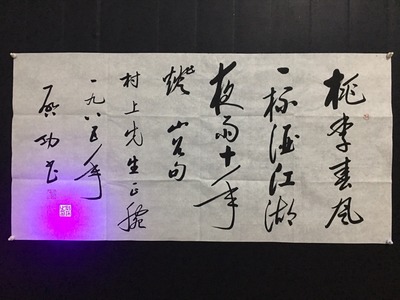 桃李春风
一杯酒江湖
夜雨十年
燈 山谷句
村上先生正腕
一九八五年
启功书